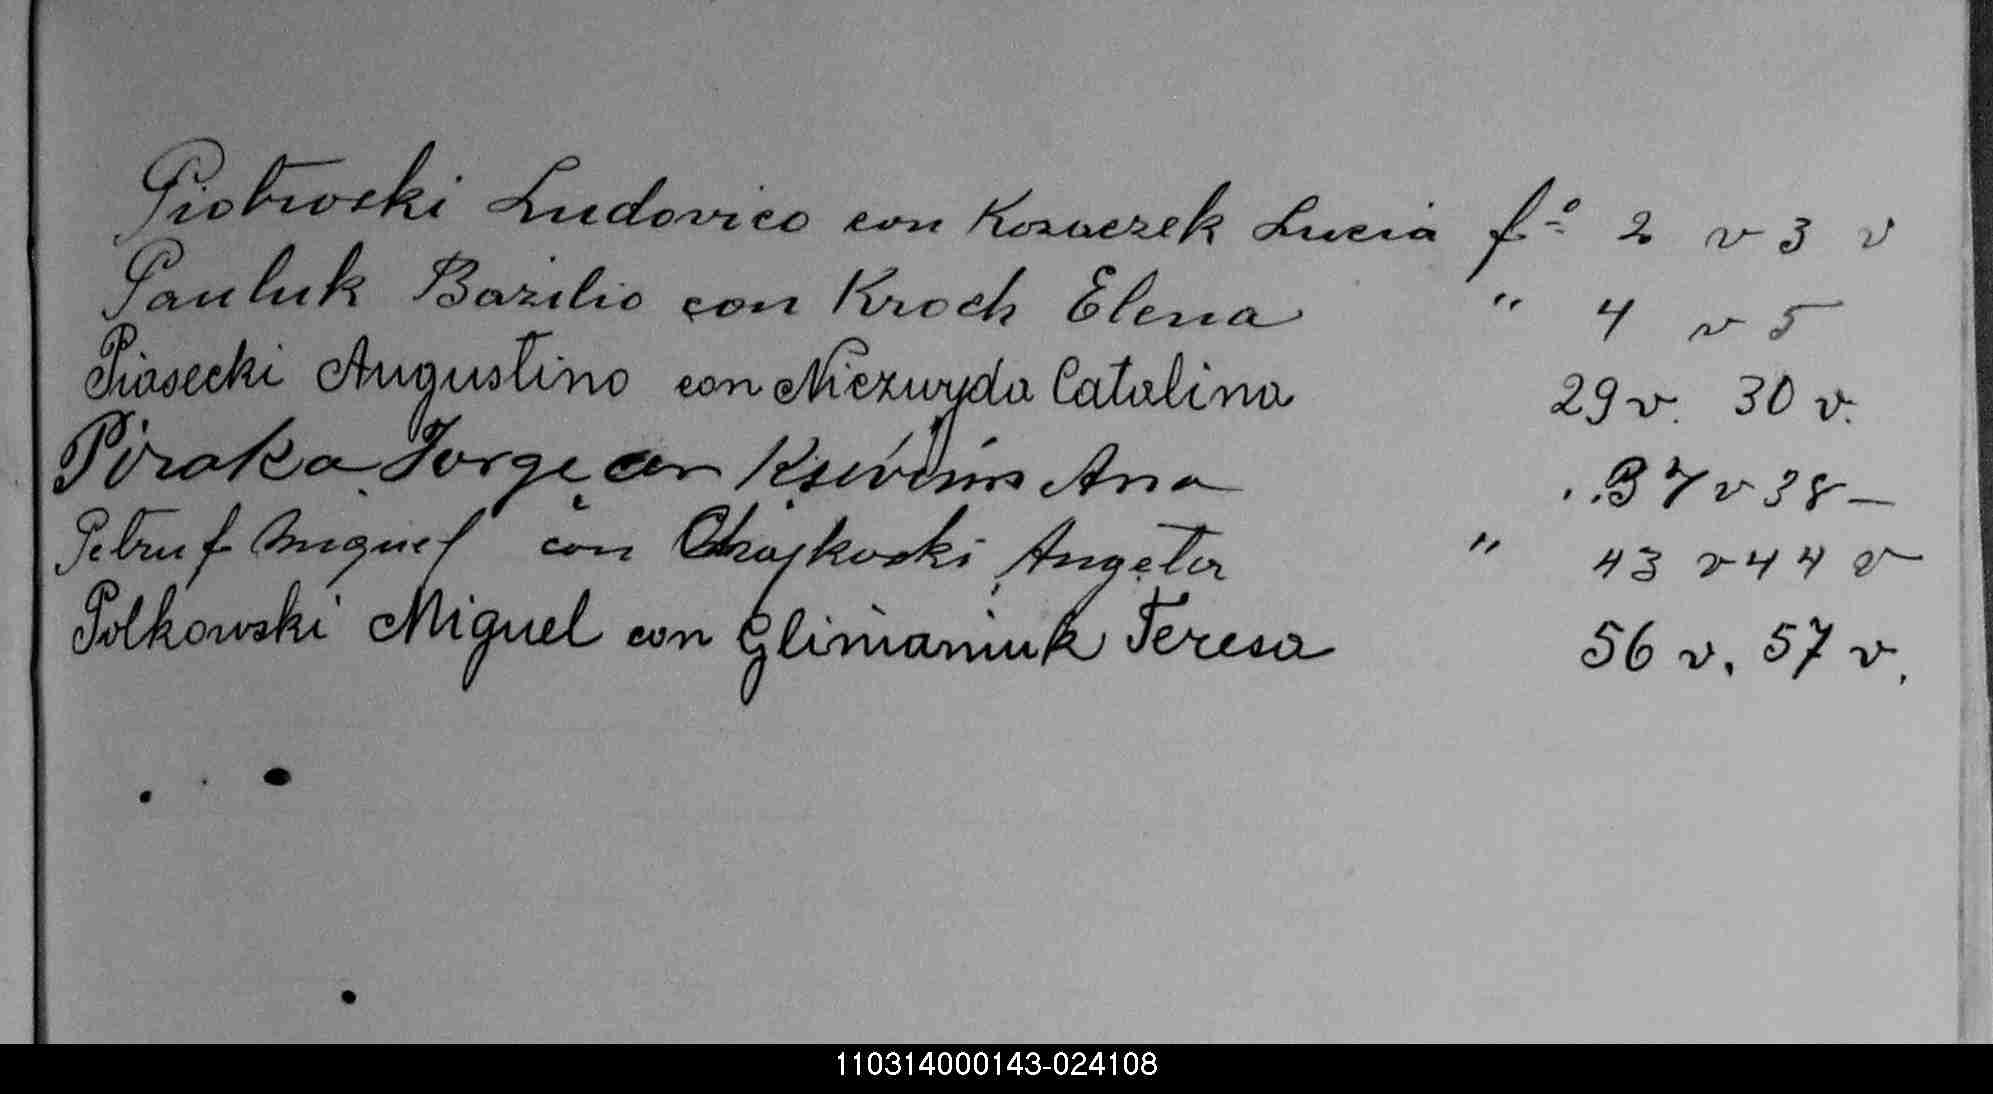 Piotroski Ludovico con Kozaczek Lucia fº 2 v 3 v
Pauluk Bazilio con Kroch Elena " 4 v 5
Piasecki Augustino con Niezwyda Catalina 29 v. 30 v.
Piraka Jorge con Ana 37 v 38 —
Petruf Miguel con Chajkoski Angela " 43 v 44 v
Polkowski Miguel con Glimaniuk Teresa 56 v. 57 v.
110314000143-024108